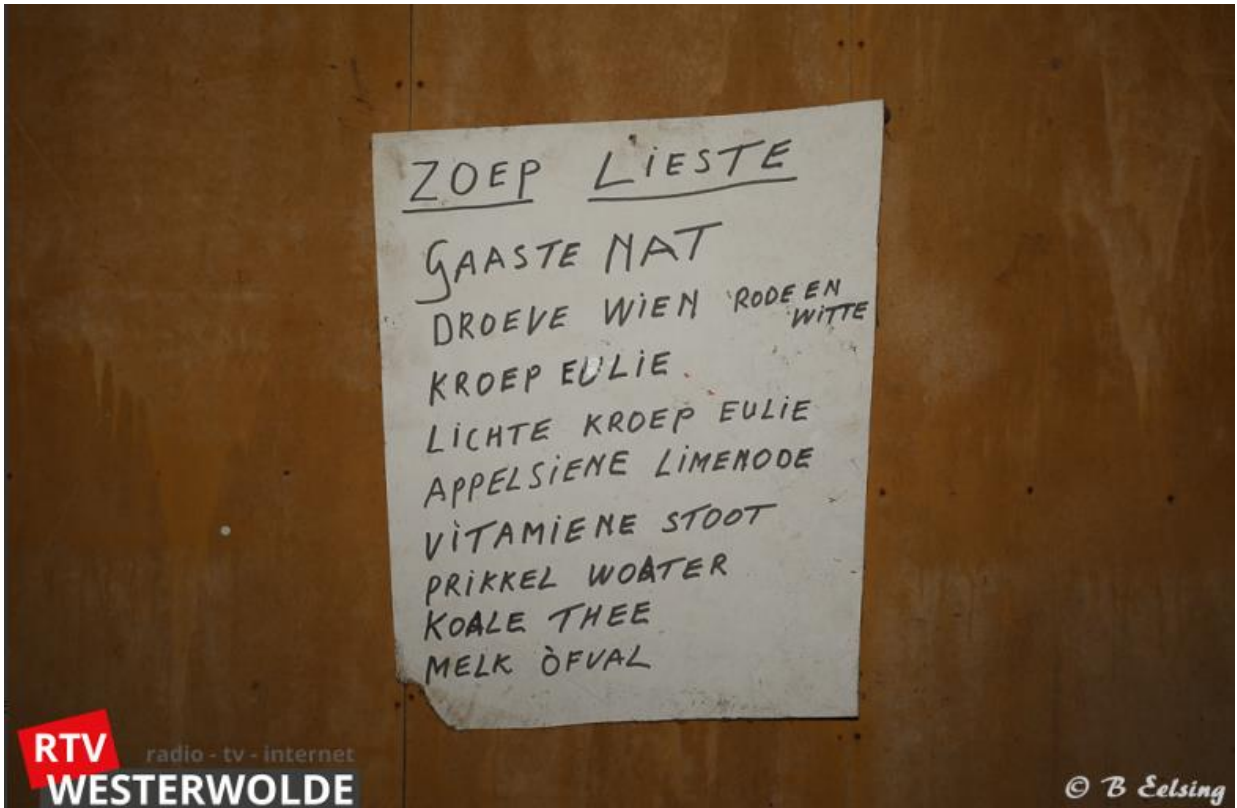 ZOEP LIESTE
GAASTE NAT
DROEVE WIEN RODE EN
WITTE
KROEP EULIE
LICHTE KROEP EULIE
APPELSIENE LIMENODE
VITAMIENE STOOT
PRIKKEL WOATER
KOALE THEE
MELK ÒFVAL
RTV radio - tv - internet
WESTERWOLDE
© B Eelsing